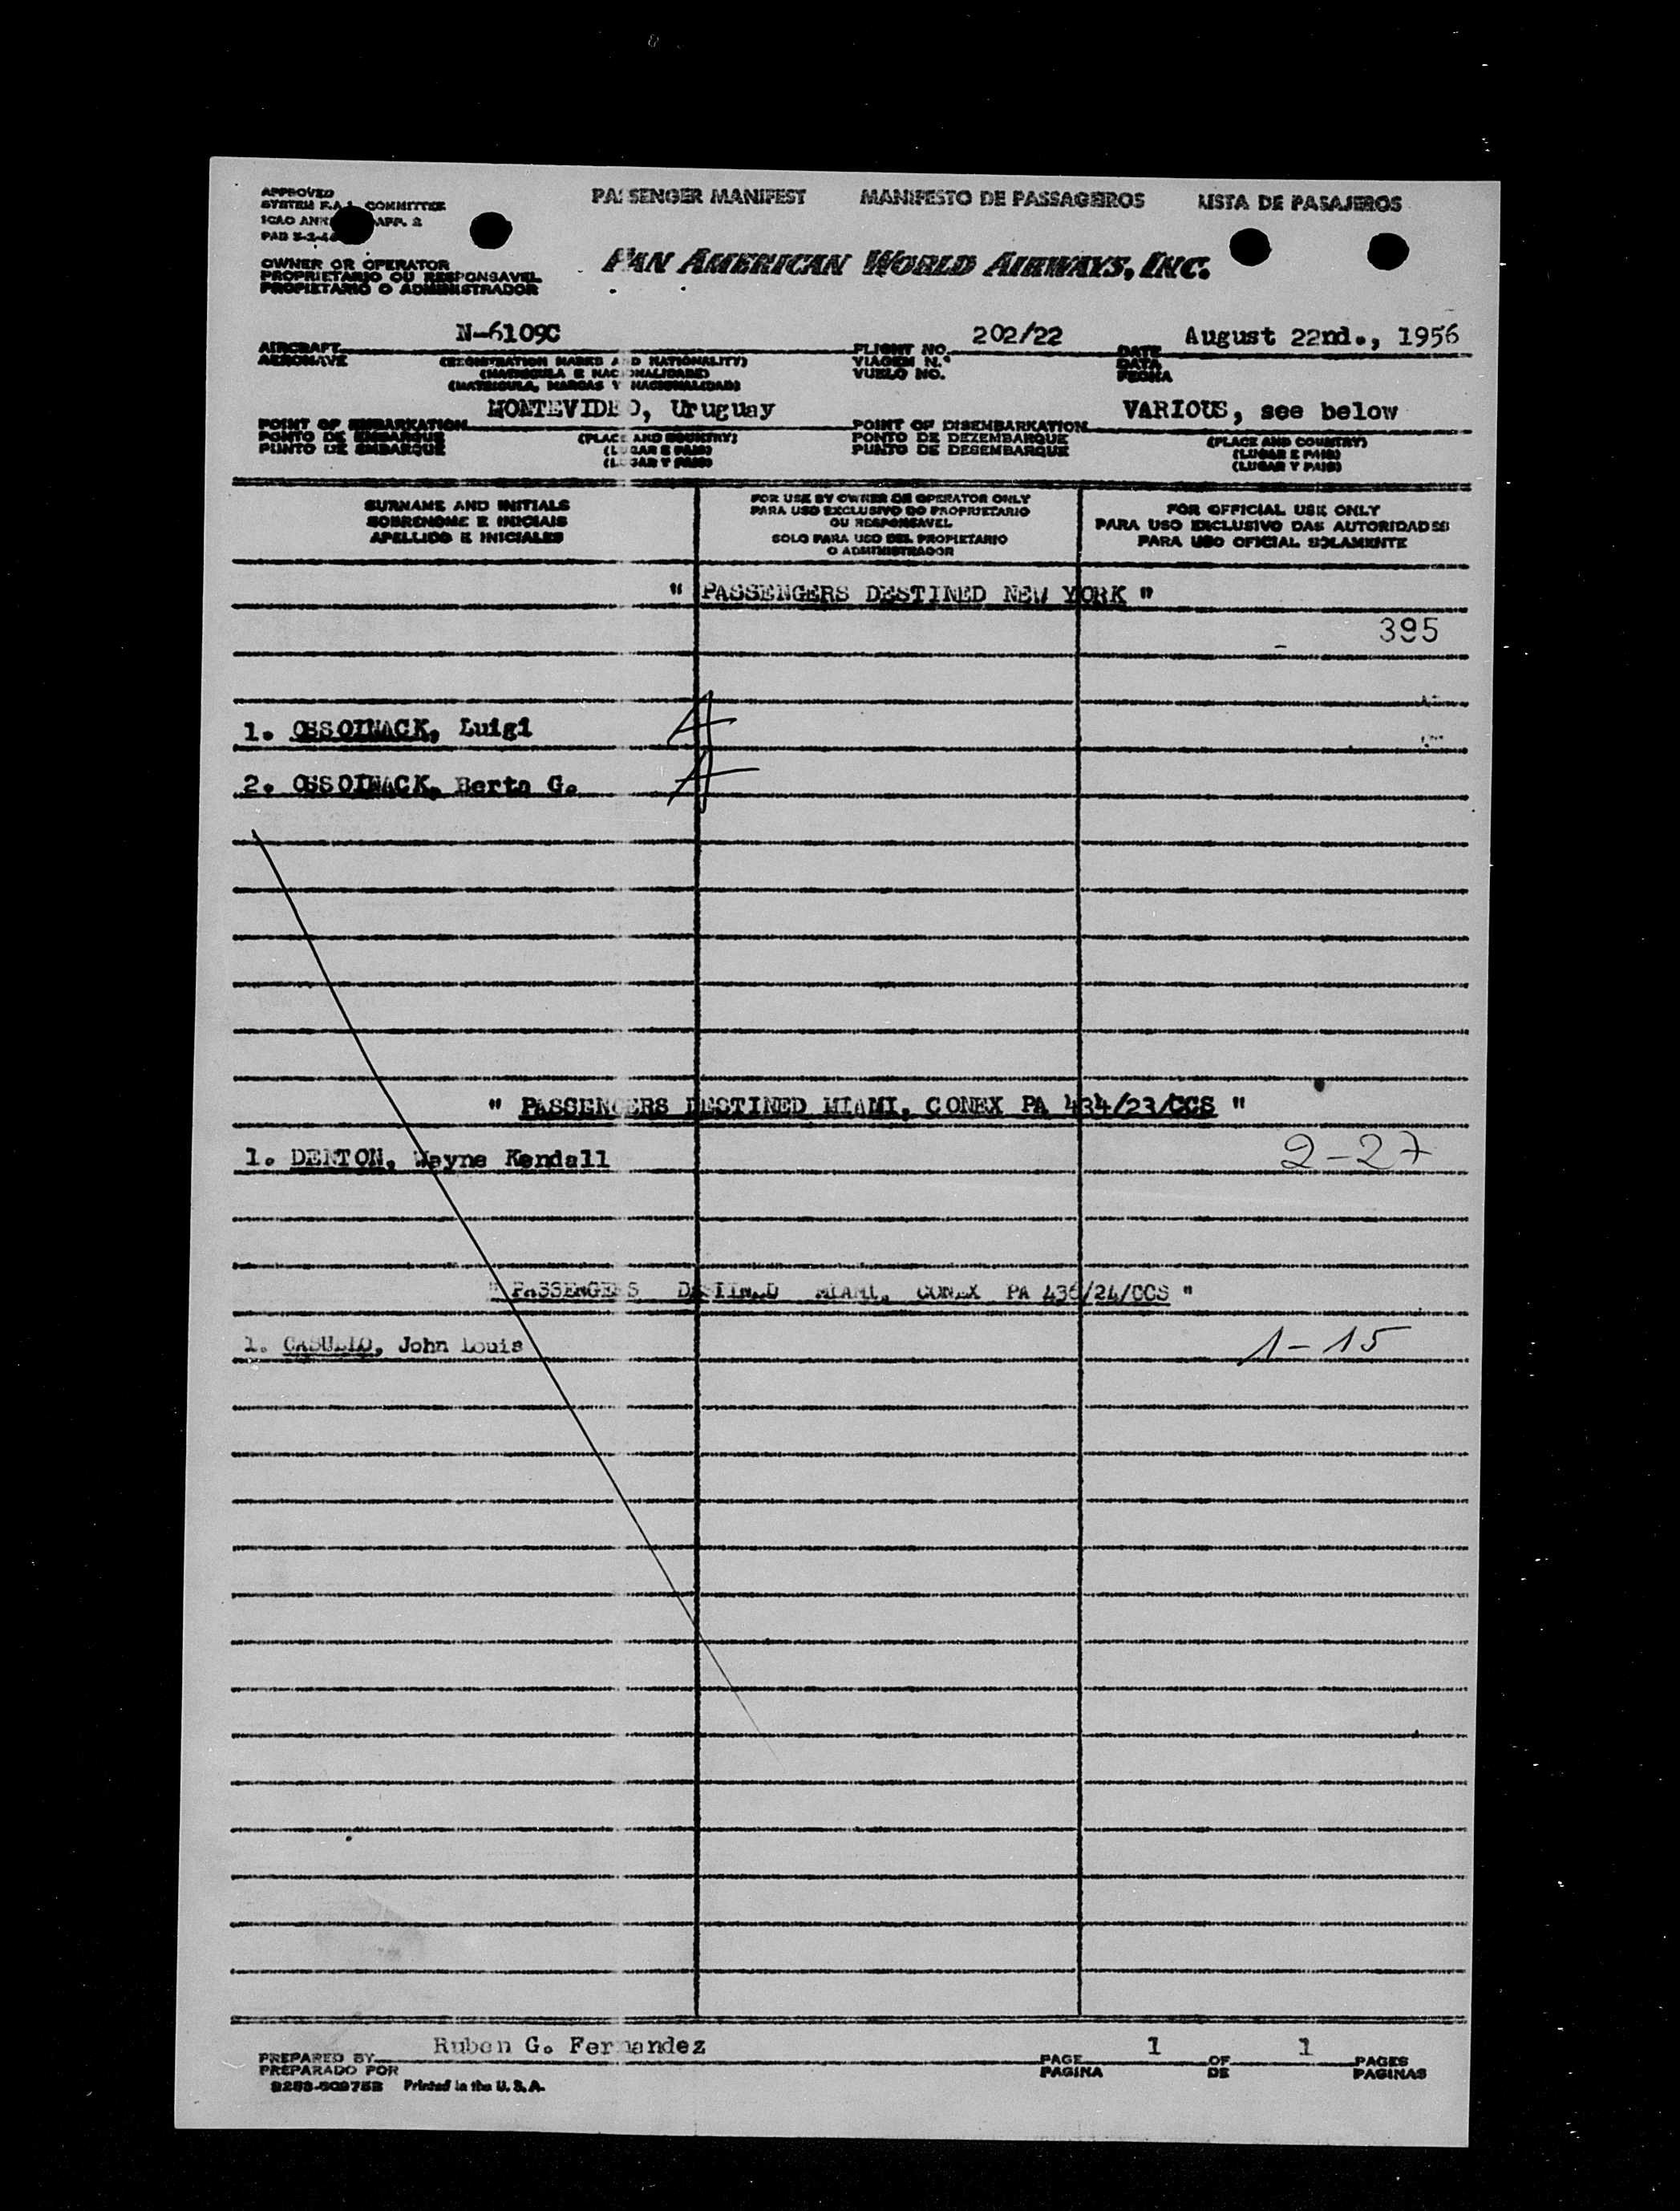 APPROVED
SYSTEM F.A.L. COMMITTEE
ICAO APP. 2
PASSENGER MANIFEST MANIFESTO DE PASSAGEIROS LISTA DE PASAJEROS
OWNER OR OPERATOR
PROPRIETARIO OU RESPONSAVEL
PROPIETARIO O ADMINISTRADOR
PAN AMERICAN WORLD AIRWAYS, INC.
N-6109C 202/22 August 22nd., 1956
AIRCRAFT FLIGHT NO. DATE
AERONAVE (REGISTRATION MARKS AND NATIONALITY) VIAGEM N.º DATA
(MATRICULA E NACIONALIDADE) VUELO NO. FECHA
(MATRICULA, MARCAS Y NACIONALIDAD)
MONTEVIDEO, Uruguay VARIOUS, see below
POINT OF EMBARKATION POINT OF DISEMBARKATION
PONTO DE EMBARQUE (PLACE AND COUNTRY) PONTO DE DEZEMBARQUE (PLACE AND COUNTRY)
PUNTO DE EMBARQUE (LUGAR E PAIS) PUNTO DE DESEMBARQUE (LUGAR E PAIS)
(LUGAR Y PAIS) (LUGAR Y PAIS)
SURNAME AND INITIALS
SOBRENOME E INICIAIS
APELLIDO E INICIALES
FOR USE BY OWNER OR OPERATOR ONLY
PARA USO EXCLUSIVO DO PROPRIETARIO
OU RESPONSAVEL
SOLO PARA USO DEL PROPIETARIO
O ADMINISTRADOR
FOR OFFICIAL USE ONLY
PARA USO EXCLUSIVO DAS AUTORIDADES
PARA USO OFICIAL SOLAMENTE
" PASSENGERS DESTINED NEW YORK "
395
1. OSSOINACK, Luigi
2. OSSOINACK, Berta G.
" PASSENGERS DESTINED MIAMI, CONEX PA 434/23/CCS "
1. DENTON, Wayne Kendall 2-27
" PASSENGERS DESTINED MIAMI, CONEX PA 436/24/CCS "
1. CASULLO, John Louis 1-15
Ruben G. Fernandez 1 1
PREPARED BY PAGE OF PAGES
PREPARADO POR PAGINA DE PAGINAS
Printed in the U.S.A.